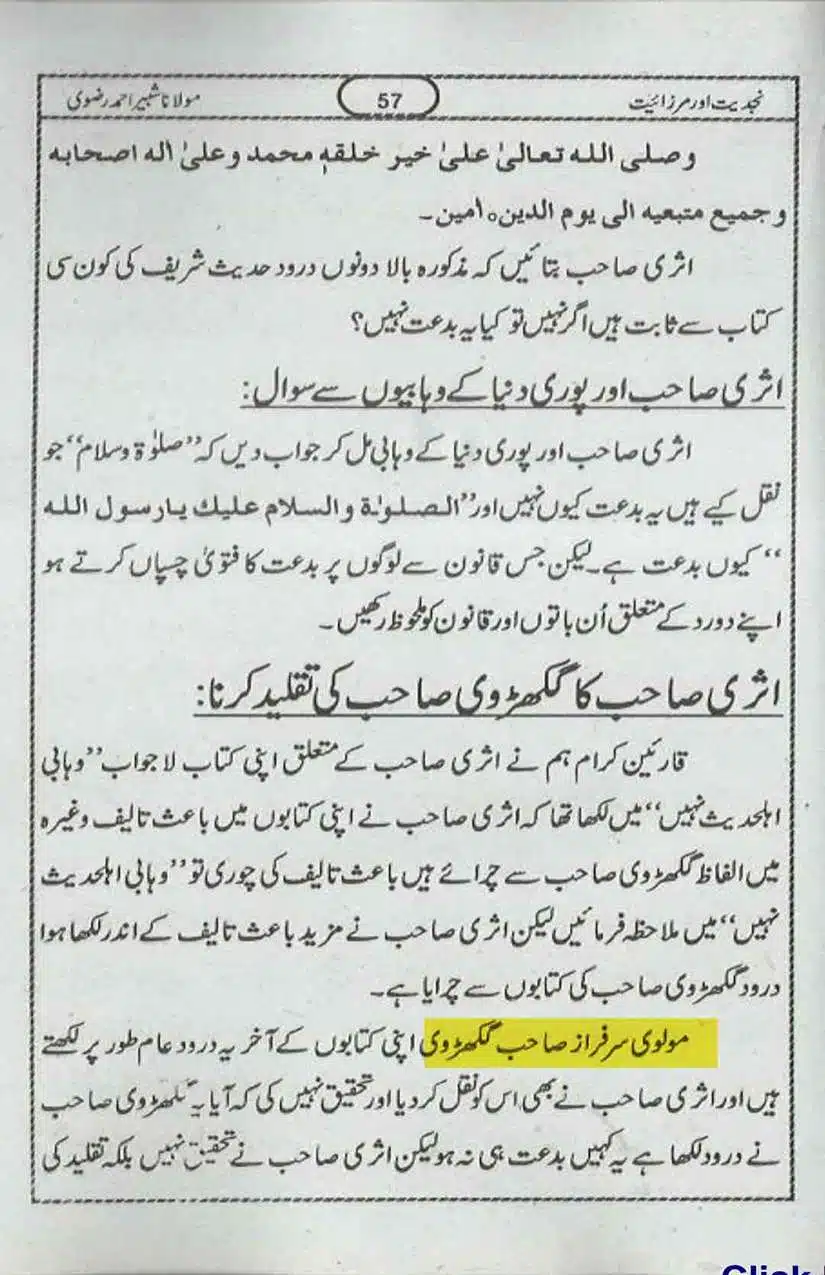 نجدیت اور مرزائیت 57 مولانا شبیر احمد رضوی
وصلی اللہ تعالیٰ علیٰ خیر خلقہٖ محمد و علیٰ اٰلہ اصحابہ
و جمیع متبعیہ الی یوم الدین ٥ امین۔
اثری صاحب بتائیں کہ مذکورہ بالا دونوں درود حدیث شریف کی کون سی
کتاب سے ثابت ہیں اگر نہیں تو کیا یہ بدعت نہیں؟
اثری صاحب اور پوری دنیا کے وہابیوں سے سوال:
اثری صاحب اور پوری دنیا کے وہابی مل کر جواب دیں کہ ”صلوٰۃ وسلام“ جو
نقل کیے ہیں یہ بدعت کیوں نہیں اور ”الصلوٰۃ والسلام علیك یارسول اللہ
“ کیوں بدعت ہے۔ لیکن جس قانون سے لوگوں پر بدعت کا فتویٰ چسپاں کرتے ہو
اپنے دورد کے متعلق اُن باتوں اور قانون کو ملحوظ رکھیں۔
اثری صاحب کا گکھڑوی صاحب کی تقلید کرنا:
قارئین کرام ہم نے اثری صاحب کے متعلق اپنی کتاب لا جواب ”وہابی
اہلحدیث نہیں“ میں لکھا تھا کہ اثری صاحب نے اپنی کتابوں میں باعث تالیف وغیرہ
میں الفاظ گکھڑوی صاحب سے چرائے ہیں باعث تالیف کی چوری تو ”وہابی اہلحدیث
نہیں“ میں ملاحظہ فرمائیں لیکن اثری صاحب نے مزید باعث تالیف کے اندر لکھا ہوا
درود گکھڑوی صاحب کی کتابوں سے چرایا ہے۔
مولوی سرفراز صاحب گکھڑوی اپنی کتابوں کے آخر یہ درود عام طور پر لکھتے
ہیں اور اثری صاحب نے بھی اس کو نقل کر دیا اور تحقیق نہیں کی کہ آیا یہ گکھڑوی صاحب
نے درود لکھا ہے یہ کہیں بدعت ہی نہ ہو لیکن اثری صاحب نے تحقیق نہیں بلکہ تقلید کی